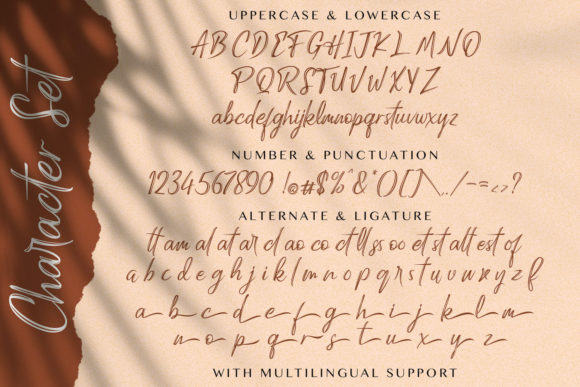 Character Set
UPPERCASE & LOWERCASE
ABCDEFGHIJKL MNO
PQRSTUVWXYZ
abcdefghijklmnopqrstuvwxyz
NUMBER & PUNCTUATION
1234567890 !@#$%^&*()[]\,./-=<>?
ALTERNATE & LIGATURE
tt am al at ar d ao co ct ll ss oo et st alt est of
a b c d e f g h i j k l m n o p q r s t u v w x y z f
a b c d e f g h i j k l m
n o p q r s t u v w x y z
WITH MULTILINGUAL SUPPORT